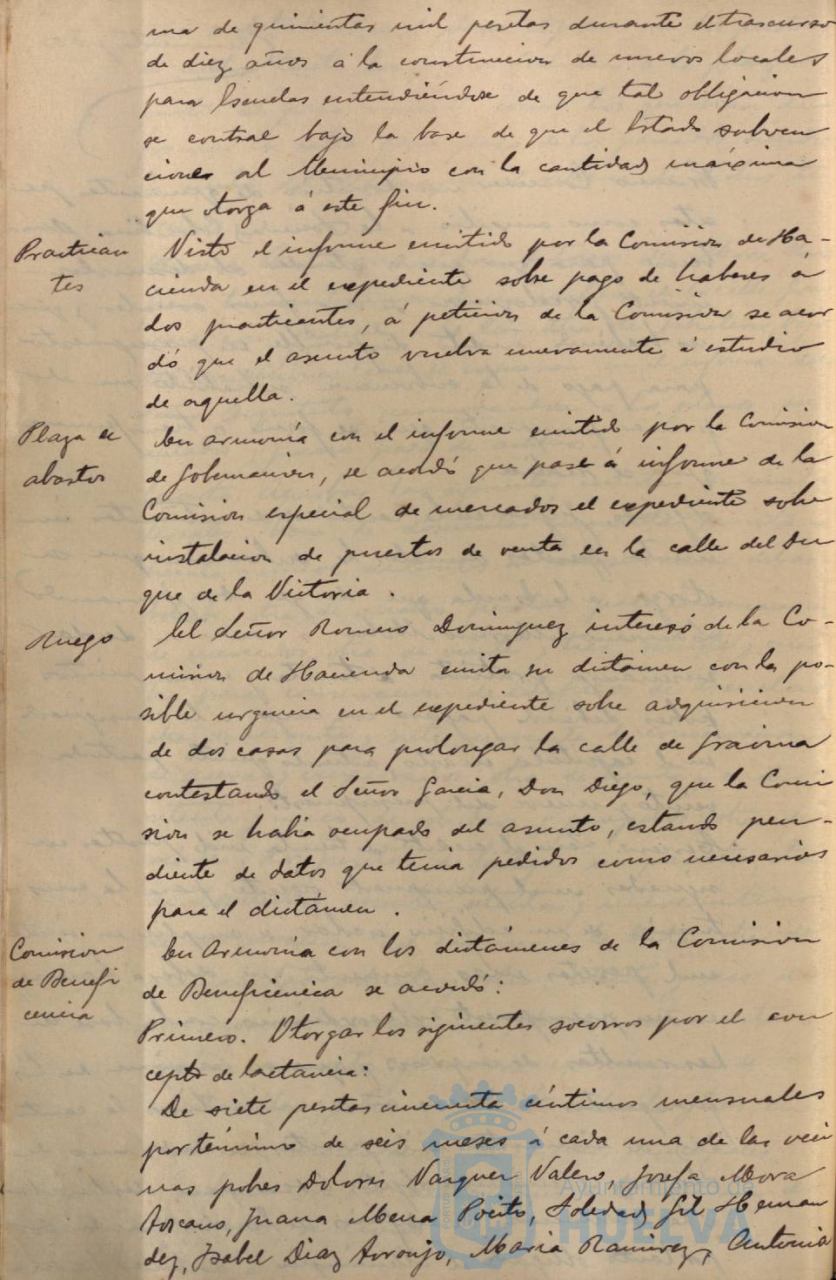 ma de quinientas mil pesetas durante el trascurso
de diez años á la construccion de nuevos locales
para Escuelas entendiéndose de que tal obligacion
se contrae bajo la base de que el Estado subven
cione al Municipio con la cantidad máxima
que otorga á este fin.
Practican
tes
Visto el informe emitido por la Comision de Ha-
cienda en el expediente sobre pago de haberes á
dos practicantes, á peticion de la Comision se acor
dó que el asunto vuelva nuevamente á estudio
de aquella.
Plaza de
abastos
En armonía con el informe emitido por la Comision
de Gobernacion, se acordó que pase á informe de la
Comision especial de mercados el expediente sobre
instalacion de puestos de venta en la calle del Du
que de la Victoria.
Ruego
El Señor Romero Dominguez interesó de la Co-
mision de Hacienda emita su dictámen con la po-
sible urgencia en el expediente sobre adquisicion
de dos casas para prolongar la calle de Gravina
contestando el Señor Garcia, Don Diego, que la Comi
sion se habia ocupado del asunto, estando pen-
diente de datos que tenia pedidos como necesarios
para el dictámen.
Comision
de Benefi
cencia
En armonía con los dictámenes de la Comision
de Beneficencia se acordó:
Primero. Otorgar los siguientes socorros por el con
cepto de lactancia:
De siete pesetas cincuenta céntimos mensuales
por término de seis meses á cada una de las veci
nas pobres Dolores Vazquez Valero, Josefa Mora
Toscano, Juana Mena Poeito, Soledad Gil Hernan
dez, Isabel Diaz Toronjo, Maria Ramirez, Antonia
Ayuntamiento de
HUELVA